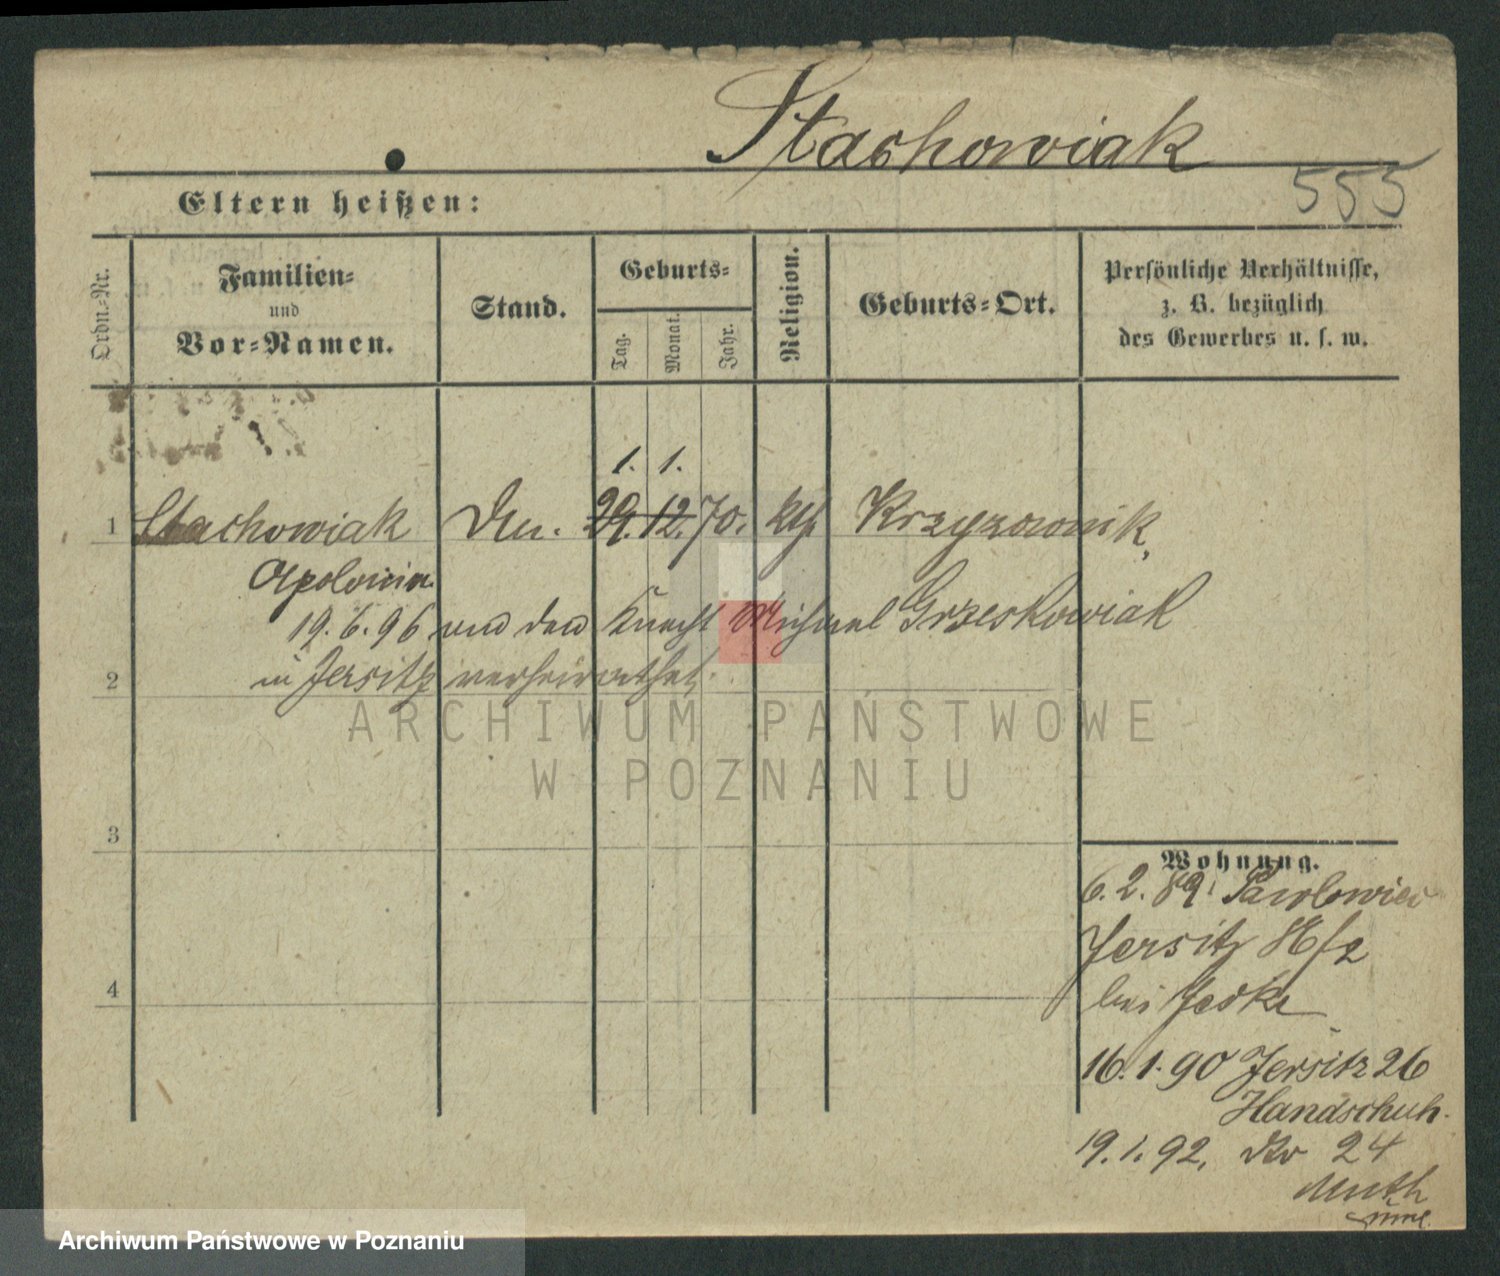 Stachowiak
555
Eltern heißen:
Ordn.-Nr.
Familien-
und
Vor-Namen.
Stand.
Geburts-
Tag.
Monat.
Jahr.
Religion.
Geburts-Ort.
Persönliche Verhältnisse,
z. B. bezüglich
des Gewerbes u. s. w.
1. 1.
1 Stachowiak 29. 12. 70. kth
Apolonia
19. 6. 96 Knecht Michael Grzeskowiak
2 in Jersitz verheirathet
ARCHIWUM PAŃSTWOWE
W POZNANIU
3
Wohnung.
6. 2. 89
Jersitz
4
bei Jeske
16. 1. 90 Jersitz 26
Handschuh.
19. 1. 92. 24
Muth
Archiwum Państwowe w Poznaniu